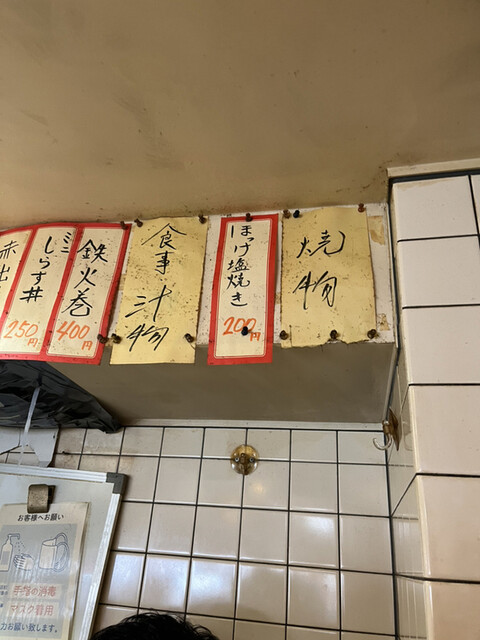 焼物
ほっけ塩焼き
200円
食事・汁物
鉄火巻
400円
ミニしらす丼
250円
赤出
お客様へお願い
手指の消毒
マスク着用
力お願い致します。